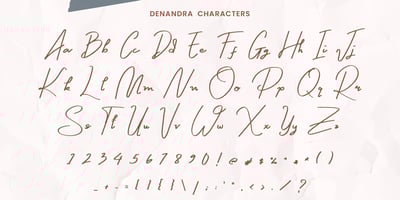 DENANDRA CHARACTERS
Aa Bb Cc Dd Ee Ff Gg Hh Ii Jj
Kk Ll Mm Nn Oo Pp Qq Rr
Ss Tt Uu Vv Ww Xx Yy Zz
1 2 3 4 5 6 7 8 9 0 ! @ # $ % ^ & * ( )